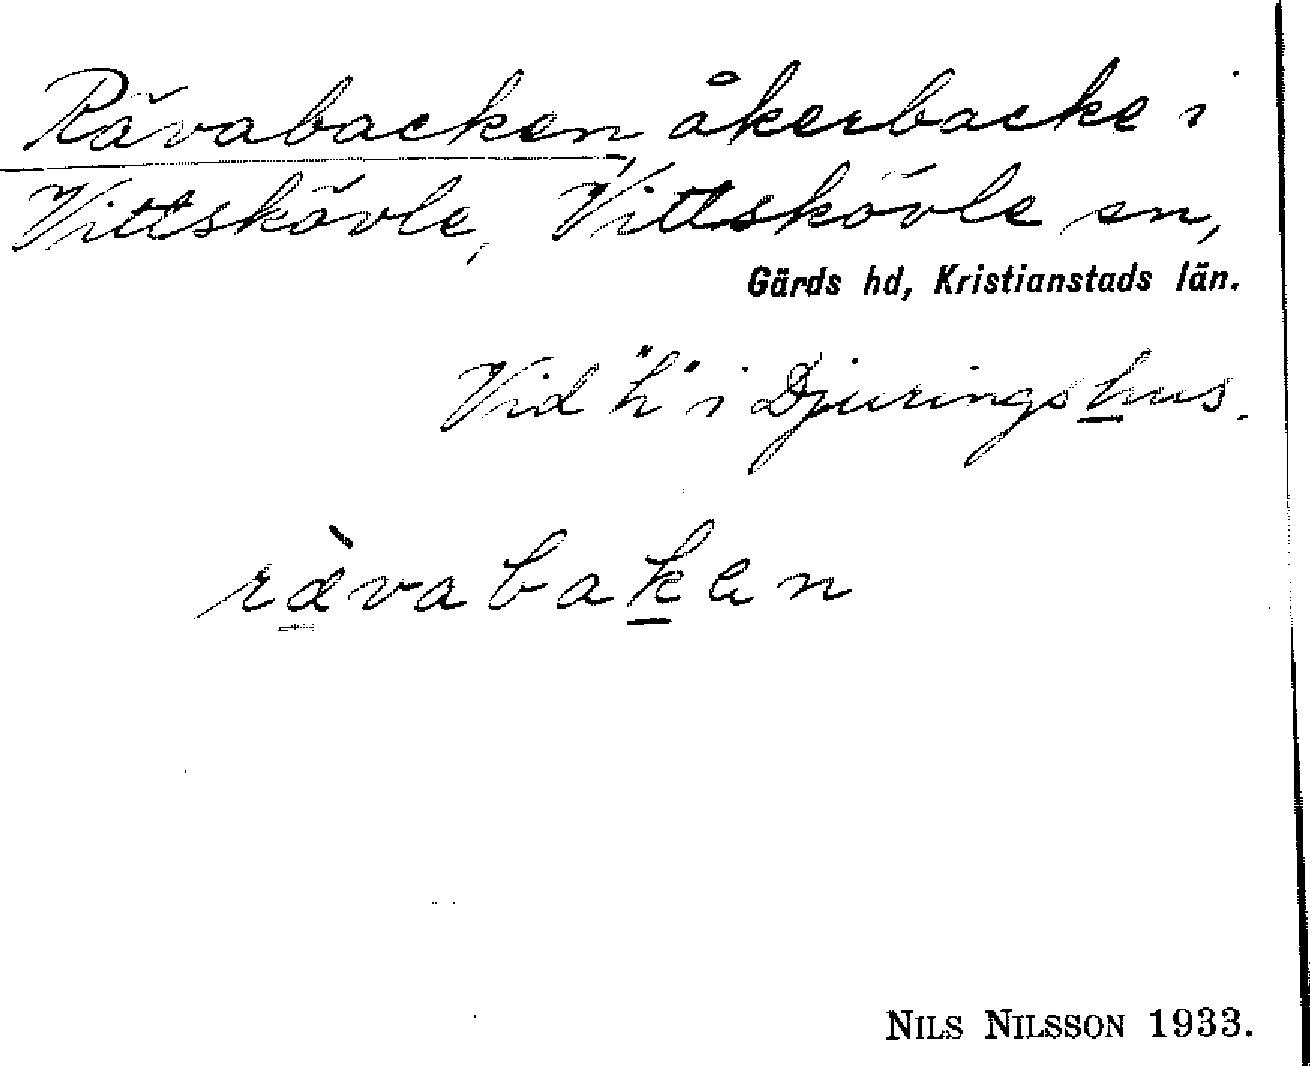 Rävabacken, åkerbacke i
Vittskövle, Vittskövle sn,
Gärds hd, Kristianstads län.
Vid "h" i Djuringshus.
rä̀vabaken
NILS NILSSON 1933.